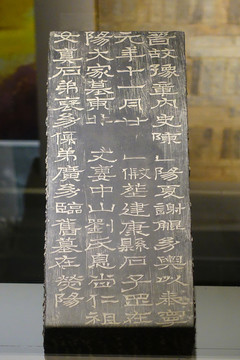 晉故豫章內史陳陽夏謝鯤幼輿以泰寧
元年十一月廿假葬建康縣石子罡在
陽大家墓東北丈妻中山劉氏息尚仁祖
女真石弟褒幼儒弟廣幼臨舊墓在熒陽